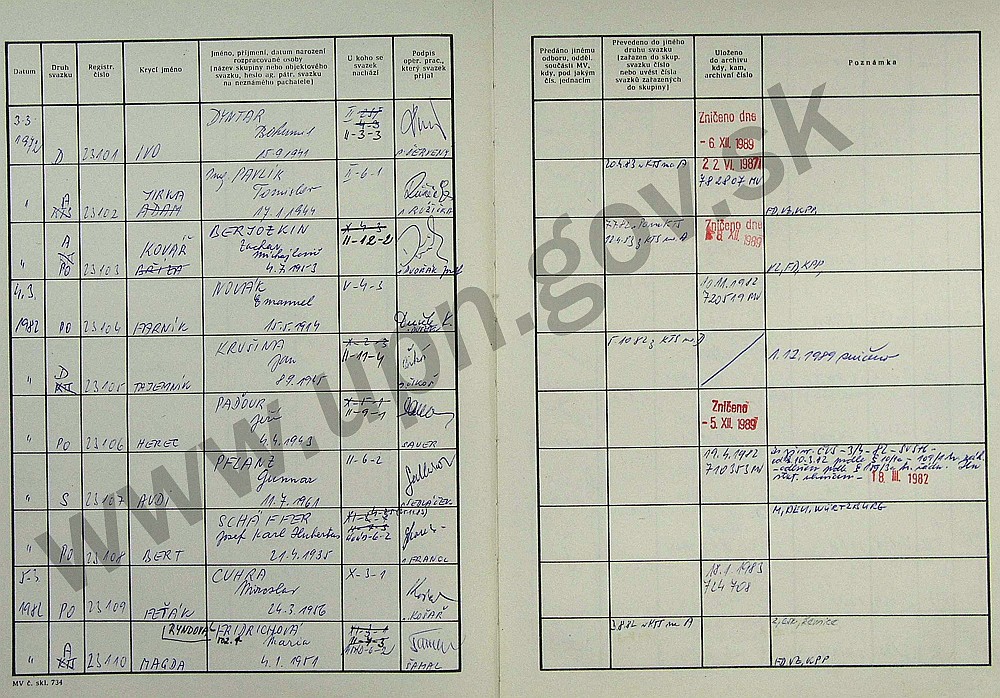 Datum
Druh svazku
Registr. číslo
Krycí jméno
Jméno, příjmení, datum narození
rozpracované osoby
(název skupiny nebo objektového
svazku, heslo ag. pátr. svazku
na neznámého pachatele)
U koho se
svazek
nachází
Podpis
oper. prac.,
který svazek
přijal
Předáno jinému
odboru, odděl.
součásti MV,
kdy, pod jakým
čís. jednacím
Převedeno do jiného
druhu svazku
(zařazen do skup.
svazku číslo
nebo uvést čísla
svazků zařazených
do skupiny)
Uloženo
do archivu
kdy, kam,
archivní číslo
Poznámka
3.3.
1982 D 23101 IVO
DYNTAR
Bohumil
15.9.1941
II-3-3
ČERVENÝ
Zničeno dne
- 6. XII. 1989
" A KTS 23102 JIRKA ADAM
Ing. PAVLÍK
Tomislav
17.1.1944
II-6-1
RŮŽIČKA
20.4.83 z KTS na A
22. VI. 1987
782807 MV
FD, VZ, KPP
" A PO 23103 KOVÁŘ
BERJOZKIN
4.7.1953
X-4-3
II-12-2
DVOŘÁK
Zničeno dne
8. XII. 1989
VZ, FD, KPP
4.3.
1982 PO 23104
NOVÁK
Emanuel
15.5.1914
V-4-3
10.11.1982
720519 MV
" D KTS 23105 TAJEMNÍK
KRUŠINA
Jan
8.9.1945
X-2-3
III-11-4
5.10.82 z KTS na D
1.12.1989 zničeno
" PO 23106 HEREC
PAĎOUR
Jiří
4.4.1943
X-5-1
II-9-1
SAUER
Zničeno
- 5. XII. 1989
" S 23107 AUDI
PFLANZ
Gunnar
11.7.1961
II-6-2
SEDLÁČEK
19.4.1982
710353 MV
18. III. 1982
" PO 23108 BERT
SCHÄFFER
Josef Karl Hubertus
21.4.1935
FRANCL
M, DLU, WÜRTZBURG
5.3.
1982 PO 23109 PEŤÁK
CUHRA
Miroslav
24.3.1956
X-3-1
KOŠAŘ
18.1.1983
724708
" A KTS 23110 MAGDA
RYNDOVÁ
FRIDRICHOVÁ
roz.
Maria
4.1.1951
ŠAMAL
3.8.82 z KTS na A
FD, VZ, KPP
MV č. skl. 734
www.upn.gov.sk